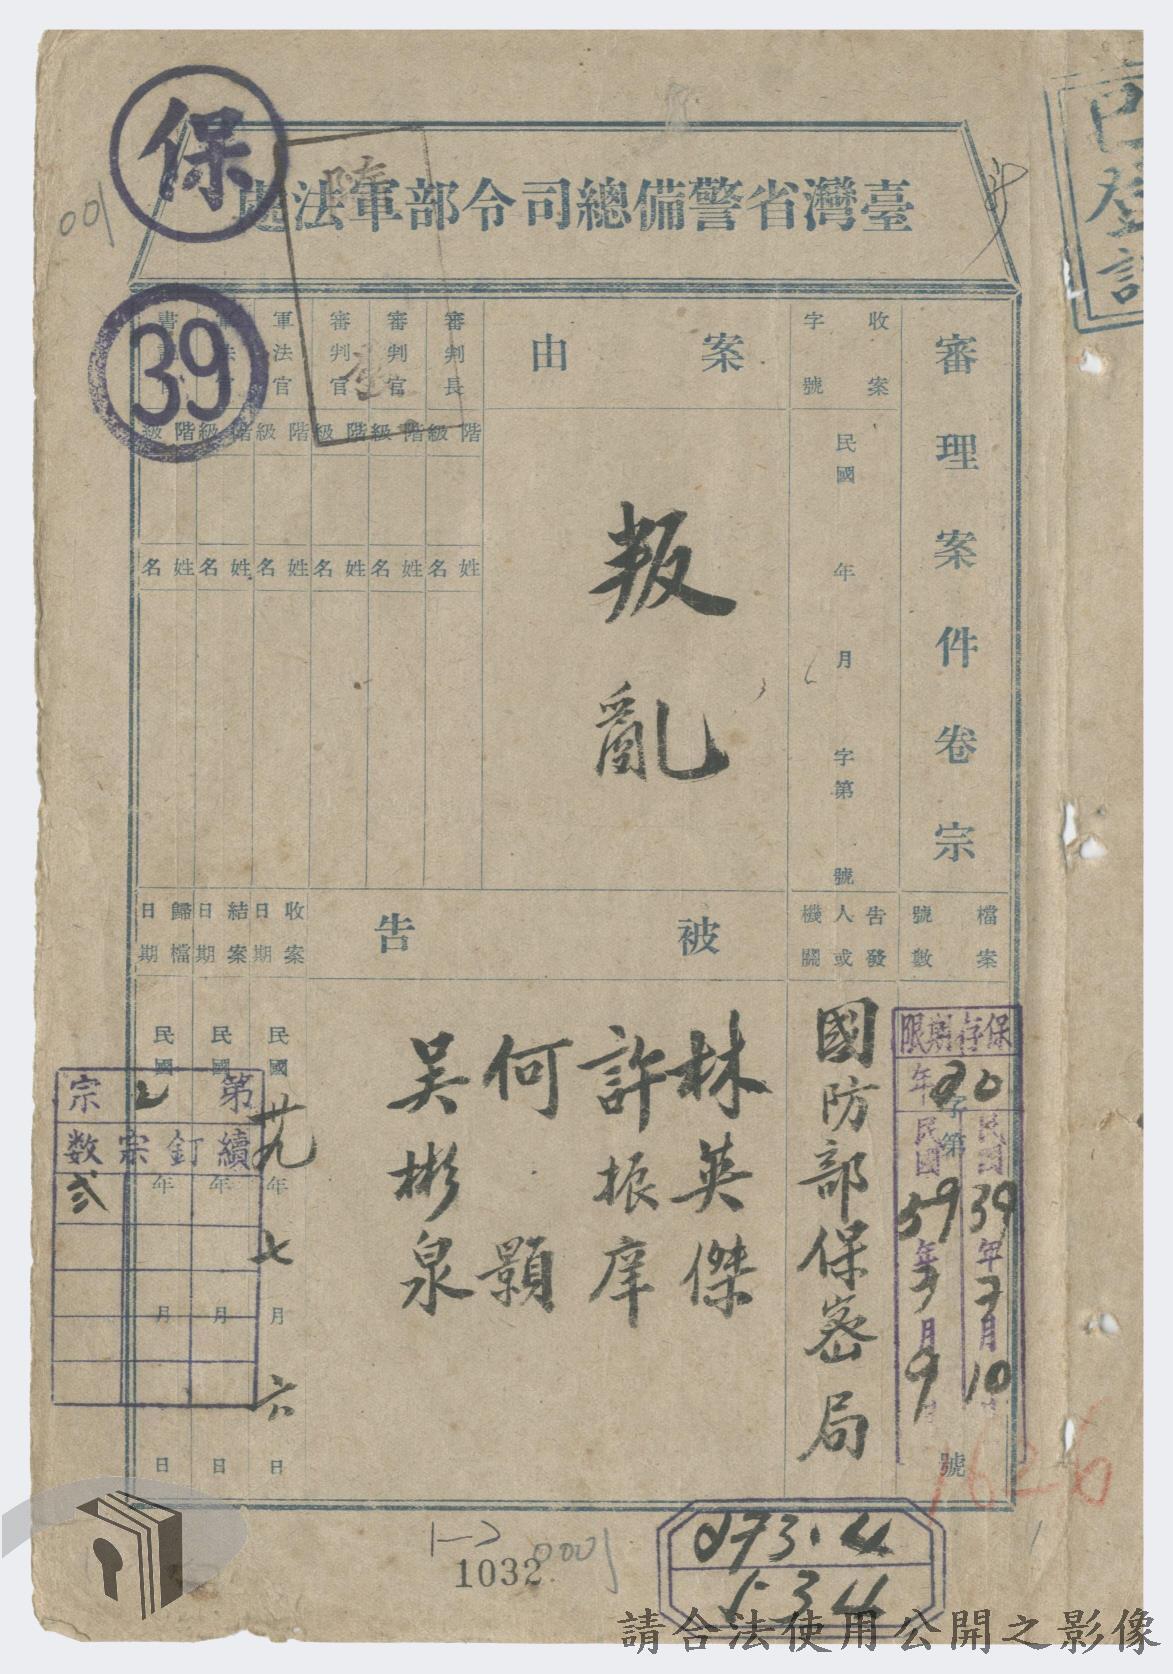 保
001
臺灣省警備總司令部軍法處
已登記
39
審理案件卷宗
收案字號
民國 年 月 字第 號
案由
叛亂
審判長
審判官
審判官
軍法官
階級
階級
階級
階級
階級
階級
姓名
姓名
姓名
姓名
姓名
姓名
檔案號數
字第
號
告發人或機關
國防部保密局
被告
林英傑
許振庠
何顯
吴彬泉
收案日期
民國卅九年七月六日
結案日期
民國 年 月 日
歸檔日期
民國 年 月 日
保存期限
20年
民國39年7月10
民國59年7月9
第2宗
續訂宗数
弍
1626
1032
0001
273.4
534
請合法使用公開之影像